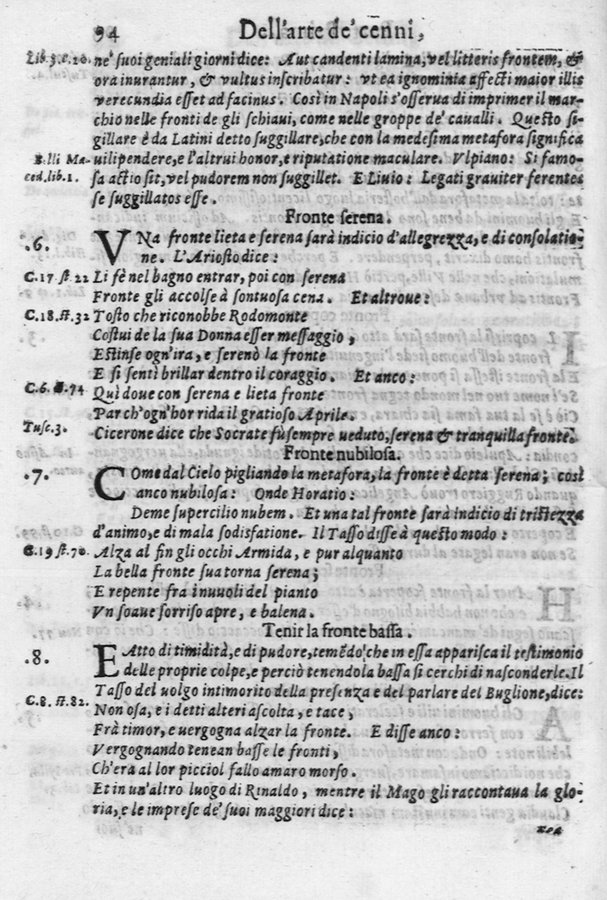 94 Dell'arte de' cenni,
Lib. 3. c. 20. ne' suoi geniali giorni dice: Aut candenti lamina, vel litteris frontem, &
ora inurantur, & vultus inscribatur: vt ea ignominia affecti maior illis
verecundia esset ad facinus. Così in Napoli s'osserua di imprimer il mar-
chio nelle fronti de gli schiaui, come nelle groppe de' caualli. Questo si-
gillare è da Latini detto suggillare, che con la medesima metafora significa
Belli Ma- uilipendere, e l'altrui honor, e riputatione maculare. Vlpiano: Si famo-
ced. lib. 1. sa actio sit, vel pudorem non suggillet. E Liuio: Legati grauiter ferentes
se suggillatos esse.
Fronte serena.
.6. VNa fronte lieta e serena sarà indicio d'allegrezza, e di consolatio-
ne. L'Ariosto dice:
C. 17. st. 22 Li fè nel bagno entrar, poi con serena
Fronte gli accolse à sontuosa cena. Et altroue:
C. 18. st. 32 Tosto che riconobbe Rodomonte
Costui de la sua Donna esser messaggio,
Estinse ogn'ira, e serenò la fronte
E si sentì brillar dentro il coraggio. Et anco:
C. 6. st. 74 Quì doue con serena e lieta fronte
Par ch'ogn'hor rida il gratioso Aprile.
Tusc. 3. Cicerone dice che Socrate fù sempre ueduto, serena & tranquilla fronte.
Fronte nubilosa.
.7. COme dal Cielo pigliando la metafora, la fronte è detta serena; così
anco nubilosa: Onde Horatio:
Deme supercilio nubem. Et una tal fronte sarà indicio di tristezza
d'animo, e di mala sodisfatione. Il Tasso disse à questo modo:
C. 19 st. 70. Alza al fin gli occhi Armida, e pur alquanto
La bella fronte sua torna serena;
E repente fra i nuuoli del pianto
Vn soaue sorriso apre, e balena.
Tenir la fronte bassa.
.8. E Atto di timidità, e di pudore, temēdo che in essa apparisca il testimonio
delle proprie colpe, e perciò tenendola bassa si cerchi di nasconderle. Il
Tasso del uolgo intimorito della presenza e del parlare del Buglione, dice:
C. 8. st. 82. Non osa, e i detti alteri ascolta, e tace,
Frà timor, e uergogna alzar la fronte. E disse anco:
Vergognando tenean basse le fronti,
Ch'era al lor picciol fallo amaro morso.
Et in un'altro luogo di Rinaldo, mentre il Mago gli raccontaua la glo-
ria, e le imprese de' suoi maggiori dice: